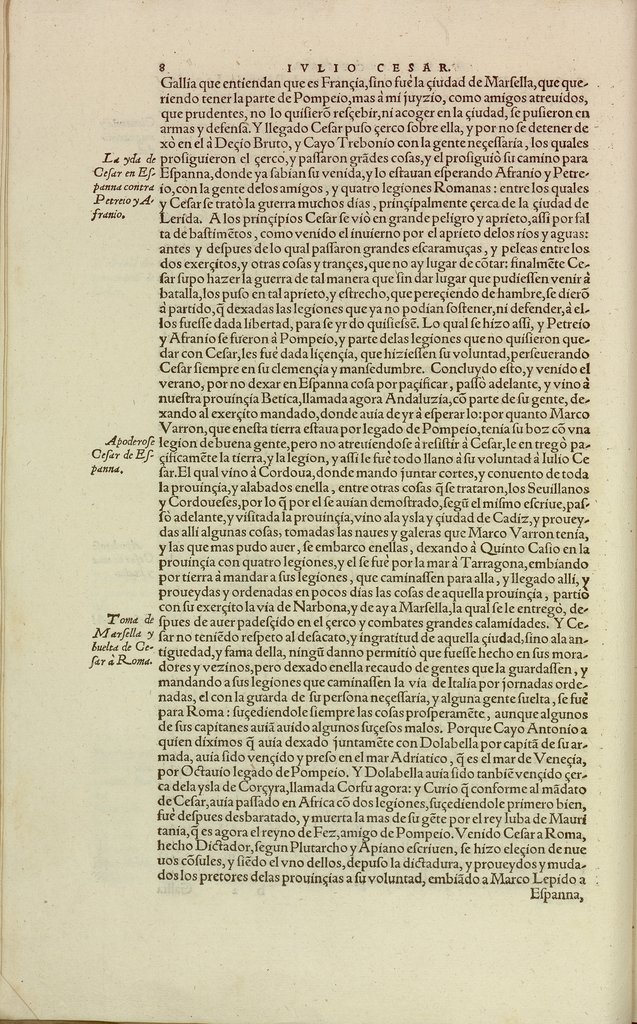 8
IVLIO CESAR.
Gallia que entiendan que es Françia, ſino fuè la çiudad de Marſella, que que-
riendo tener la parte de Pompeio, mas à mi juyzio, como amigos atreuidos,
que prudentes, no lo quiſierõ reſçebir, ni acoger en la çiudad, ſe puſieron en
armas y defenſa. Y llegado Ceſar puſo çerco ſobre ella, y por no ſe detener de
xò en el à Deçio Bruto, y Cayo Trebonio con la gente neçeſſaria, los quales
La yda de
Ceſar en Eſ-
panna contra
Petreio y A-
franio.
proſiguieron el çerco, y paſſaron grãdes coſas, y el proſiguiò ſu camino para
Eſpanna, donde ya ſabian ſu venida, y lo eſtauan eſperando Afranio y Petre-
io, con la gente delos amigos, y quatro legiones Romanas: entre los quales
y Ceſar ſe tratò la guerra muchos dias, prinçipalmente çerca de la çiudad de
Lerida. A los prinçipios Ceſar ſe viò en grande peligro y aprieto, aſſi por fal
ta de baſtimẽtos, como venido el inuierno por el aprieto delos rios y aguas:
antes y deſpues de lo qual paſſaron grandes eſcaramuças, y peleas entre los
dos exerçitos, y otras coſas y trançes, que no ay lugar de cõtar: finalmẽte Ce-
ſar ſupo hazer la guerra de tal manera que ſin dar lugar que pudieſſen venir à
batalla, los puſo en tal aprieto, y eſtrecho, que pereçiendo de hambre, ſe dierõ
à partido, q̃ dexadas las legiones que ya no podian ſoſtener, ni defender, à el-
los fueſſe dada libertad, para ſe yr do quiſieſsẽ. Lo qual ſe hizo aſſi, y Petreio
y Afranio ſe fueron à Pompeio, y parte delas legiones que no quiſieron que-
dar con Ceſar, les fuè dada liçençia, que hizieſſen ſu voluntad, perſeuerando
Ceſar ſiempre en ſu clemençia y manſedumbre. Concluydo eſto, y venido el
verano, por no dexar en Eſpanna coſa por paçificar, paſſò adelante, y vino à
nueſtra prouinçia Betica, llamada agora Andaluzia, cõ parte de ſu gente, de-
xando al exerçito mandado, donde auia de yr à eſperarlo: por quanto Marco
Varron, que eneſta tierra eſtaua por legado de Pompeio, tenia ſu boz cõ vna
Apoderoſe
Ceſar de Eſ-
panna.
legion de buena gente, pero no atreuiendoſe à reſiſtir à Ceſar, le en tregò pa-
çificamẽte la tierra, y la legion, y aſſi le fuè todo llano à ſu voluntad à Iulio Ce
ſar. El qual vino à Cordoua, donde mando juntar cortes, y conuento de toda
la prouinçia, y alabados enella, entre otras coſas q̃ ſe trataron, los Seuillanos
y Cordoueſes, por lo q̃ por el ſe auian demoſtrado, ſegũ el miſmo eſcriue, paſ-
ſò adelante, y viſitada la prouinçia, vino ala yſla y çiudad de Cadiz, y prouey-
das alli algunas coſas, tomadas las naues y galeras que Marco Varron tenia,
y las que mas pudo auer, ſe embarco enellas, dexando à Quinto Caſio en la
prouinçia con quatro legiones, y el ſe fuè por la mar à Tarragona, embiando
por tierra à mandar a ſus legiones, que caminaſſen para alla, y llegado alli, y
proueydas y ordenadas en pocos dias las coſas de aquella prouinçia, partiò
con ſu exerçito la via de Narbona, y de ay a Marſella, la qual ſe le entregò, de-
Toma de
Marſella y
buelta de Ce-
ſar à Roma.
ſpues de auer padeſçido en el çerco y combates grandes calamidades. Y Ce-
ſar no teniẽdo reſpeto al deſacato, y ingratitud de aquella çiudad, ſino ala an-
tiguedad, y fama della, ningũ danno permitiò que fueſſe hecho en ſus mora-
dores y vezinos, pero dexado enella recaudo de gentes que la guardaſſen, y
mandando a ſus legiones que caminaſſen la via de Italia por jornadas orde-
nadas, el con la guarda de ſu perſona neçeſſaria, y alguna gente ſuelta, ſe fuè
para Roma: ſuçediendole ſiempre las coſas proſperamẽte, aunque algunos
de ſus capitanes auiã auido algunos ſuçeſos malos. Porque Cayo Antonio a
quien diximos q̃ auia dexado juntamẽte con Dolabella por capitã de ſu ar-
mada, auia ſido vençido y preſo en el mar Adriatico, q̃ es el mar de Veneçia,
por Octauio legado de Pompeio. Y Dolabella auia ſido tanbiẽ vençido çer-
ca dela yſla de Corçyra, llamada Corfu agora: y Curio q̃ conforme al mãdato
de Ceſar, auia paſſado en Africa cõ dos legiones, ſuçediendole primero bien,
fuè deſpues desbaratado, y muerta la mas de ſu gẽte por el rey Iuba de Mauri
tania, q̃ es agora el reyno de Fez, amigo de Pompeio. Venido Ceſar a Roma,
hecho Dictador, ſegun Plutarcho y Apiano eſcriuen, ſe hizo eleçion de nue
uos cõſules, y ſiẽdo el vno dellos, depuſo la dictadura, y proueydos y muda-
dos los pretores delas prouinçias a ſu voluntad, embiãdo a Marco Lepido a
Eſpanna,